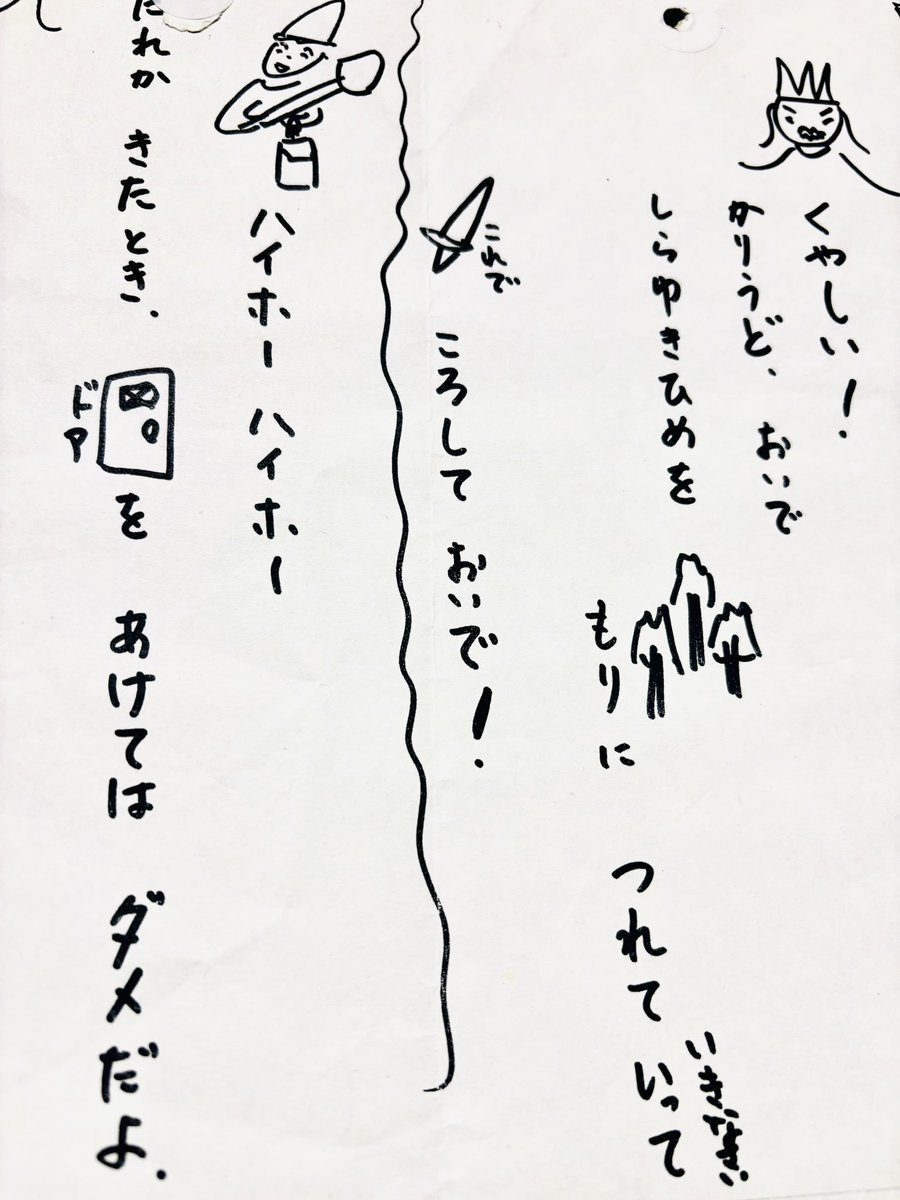 くやしい！
かりうど、おいで
しらゆきひめを
もりに
つれて いって
これで
ころして おいで！
ハイホー ハイホー
だれか きたとき、
ドア
を あけては ダメだよ.